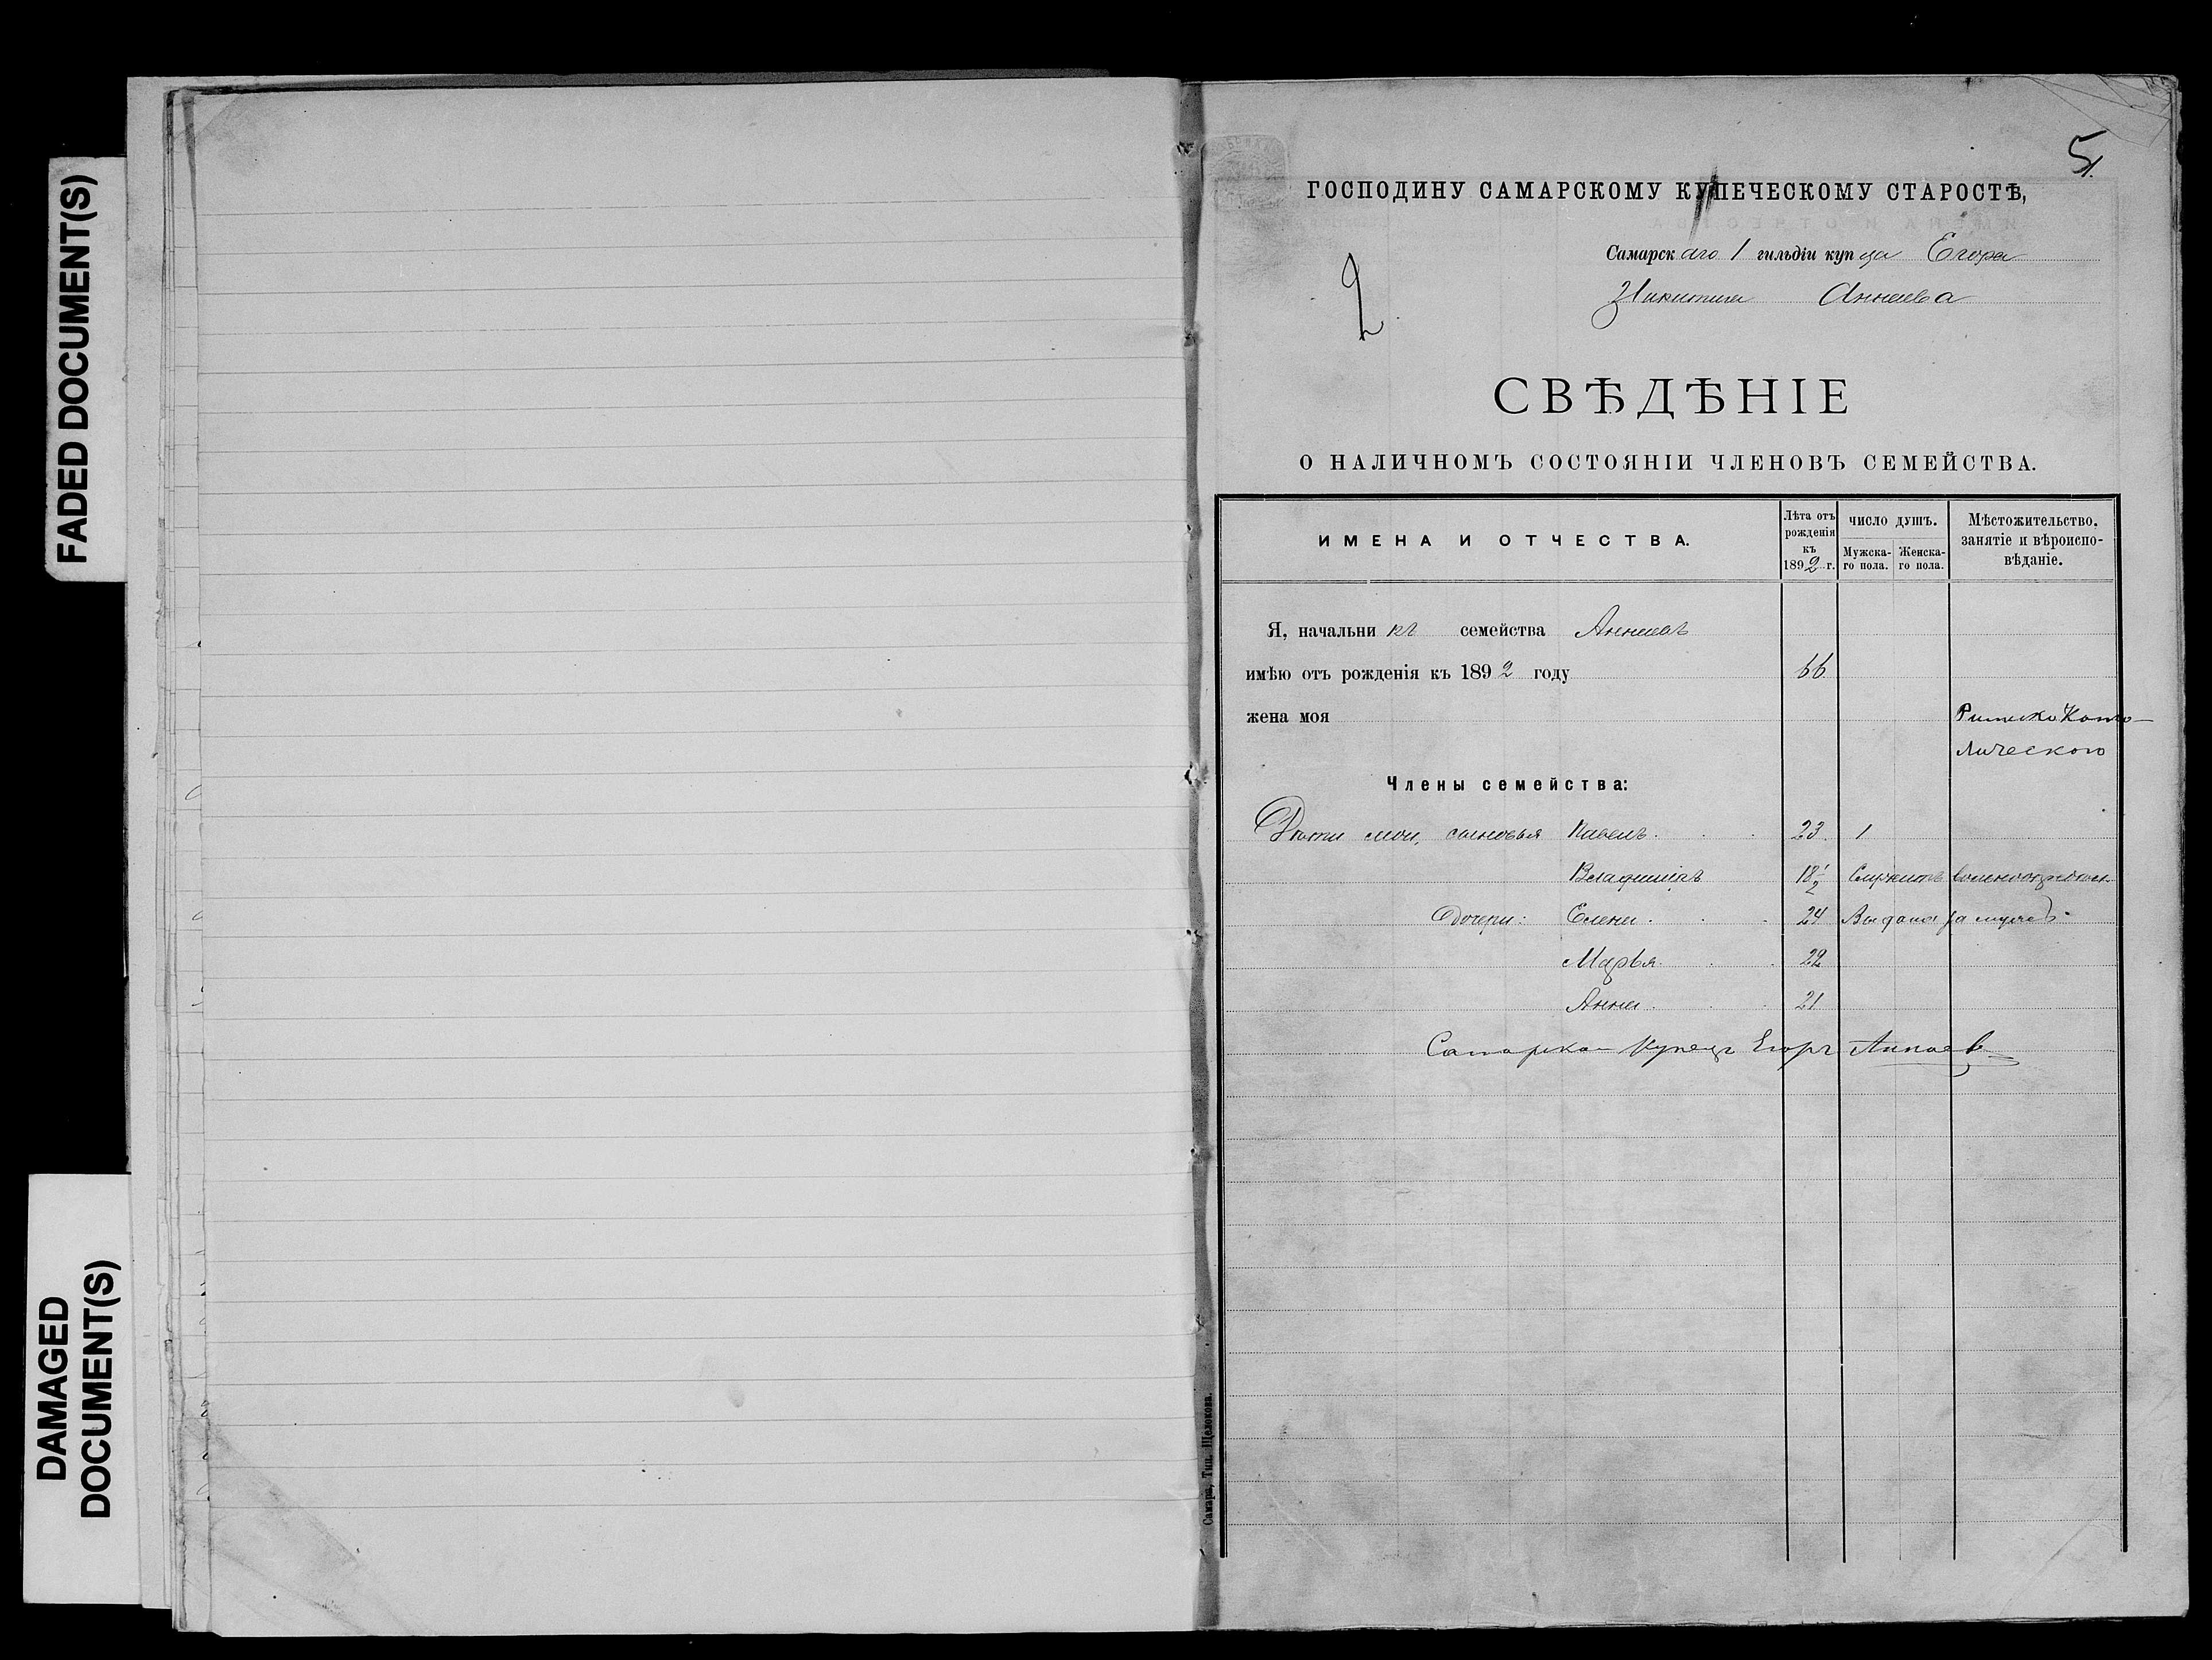 FADED DOCUMENT(S)
DAMAGED
DOCUMENT(S)
5.
ГОСПОДИНУ САМАРСКОМУ КУПЕЧЕСКОМУ СТАРОСТѢ,
Самарскаго 1 гильдіи купца Егора
Никитича Аннаева
2
СВѢДѢНІЕ
О НАЛИЧНОМЪ СОСТОЯНІИ ЧЛЕНОВЪ СЕМЕЙСТВА.
ИМЕНА И ОТЧЕСТВА.
Лѣта отъ
рожденія
къ
1892 г.
ЧИСЛО ДУШЪ.
Мужска-
го пола.
Женска-
го пола.
Мѣстожительство,
занятіе и вѣроиспо-
вѣданіе.
Я, начальникъ семейства Аннаевъ
имѣю отъ рожденія къ 1892 году 66
жена моя Римско Като-
лическаго
Члены семейства:
Дѣти мои, сыновья Павелъ 23 1
Владиміръ 18 1/2 Служитъ
Дочери: Елена 24 Выдана за мужъ
Марья 22
Анна 21
Самарской Купецъ Егоръ Аннаев
Самара, Тип. Щелокова.